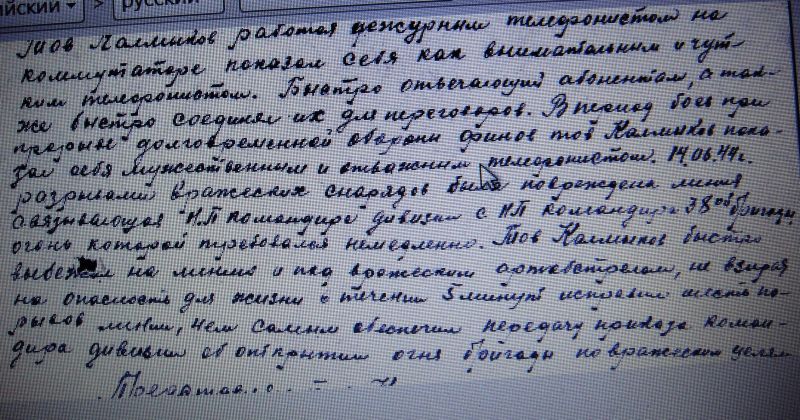 ийский русский
Тов Калмыков работая дежурным телефонистом на
коммутаторе показал себя как внимательным и чут-
ким телефонистом. Быстро отвечающий абонентам, а так-
же быстро соединял их для переговоров. В период боев при
прорыве долговременной обороны финов тов Калмыков пока-
зал себя мужественным и отважным телефонистом. 14.06.44г.
разрывами вражеских снарядов была повреждена линия
связывающая НП командира дивизии с НП командира 38ой бригады,
огонь которой требовался немедленно. Тов Калмыков быстро
выбежал на линию и под вражеским артобстрелом, не взирая
на опасность для жизни в течении 5 минут исправил шесть по-
рывов линии, чем самым обеспечил передачу приказа коман-
дира дивизии об открытии огня бригады по вражеским целям